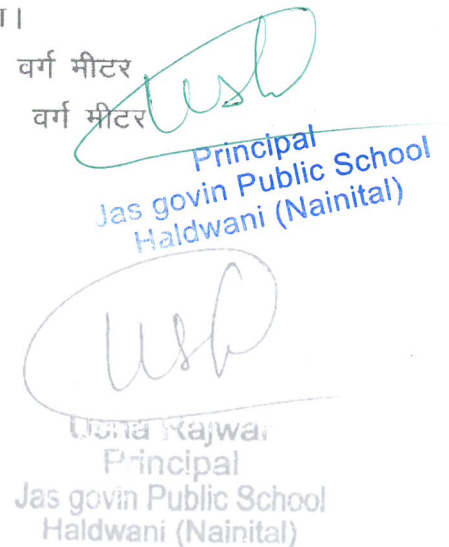 ा।
वर्ग मीटर
वर्ग मीटर
Principal
Jas govin Public School
Haldwani (Nainital)
Usha Rajwar
Principal
Jas govin Public School
Haldwani (Nainital)